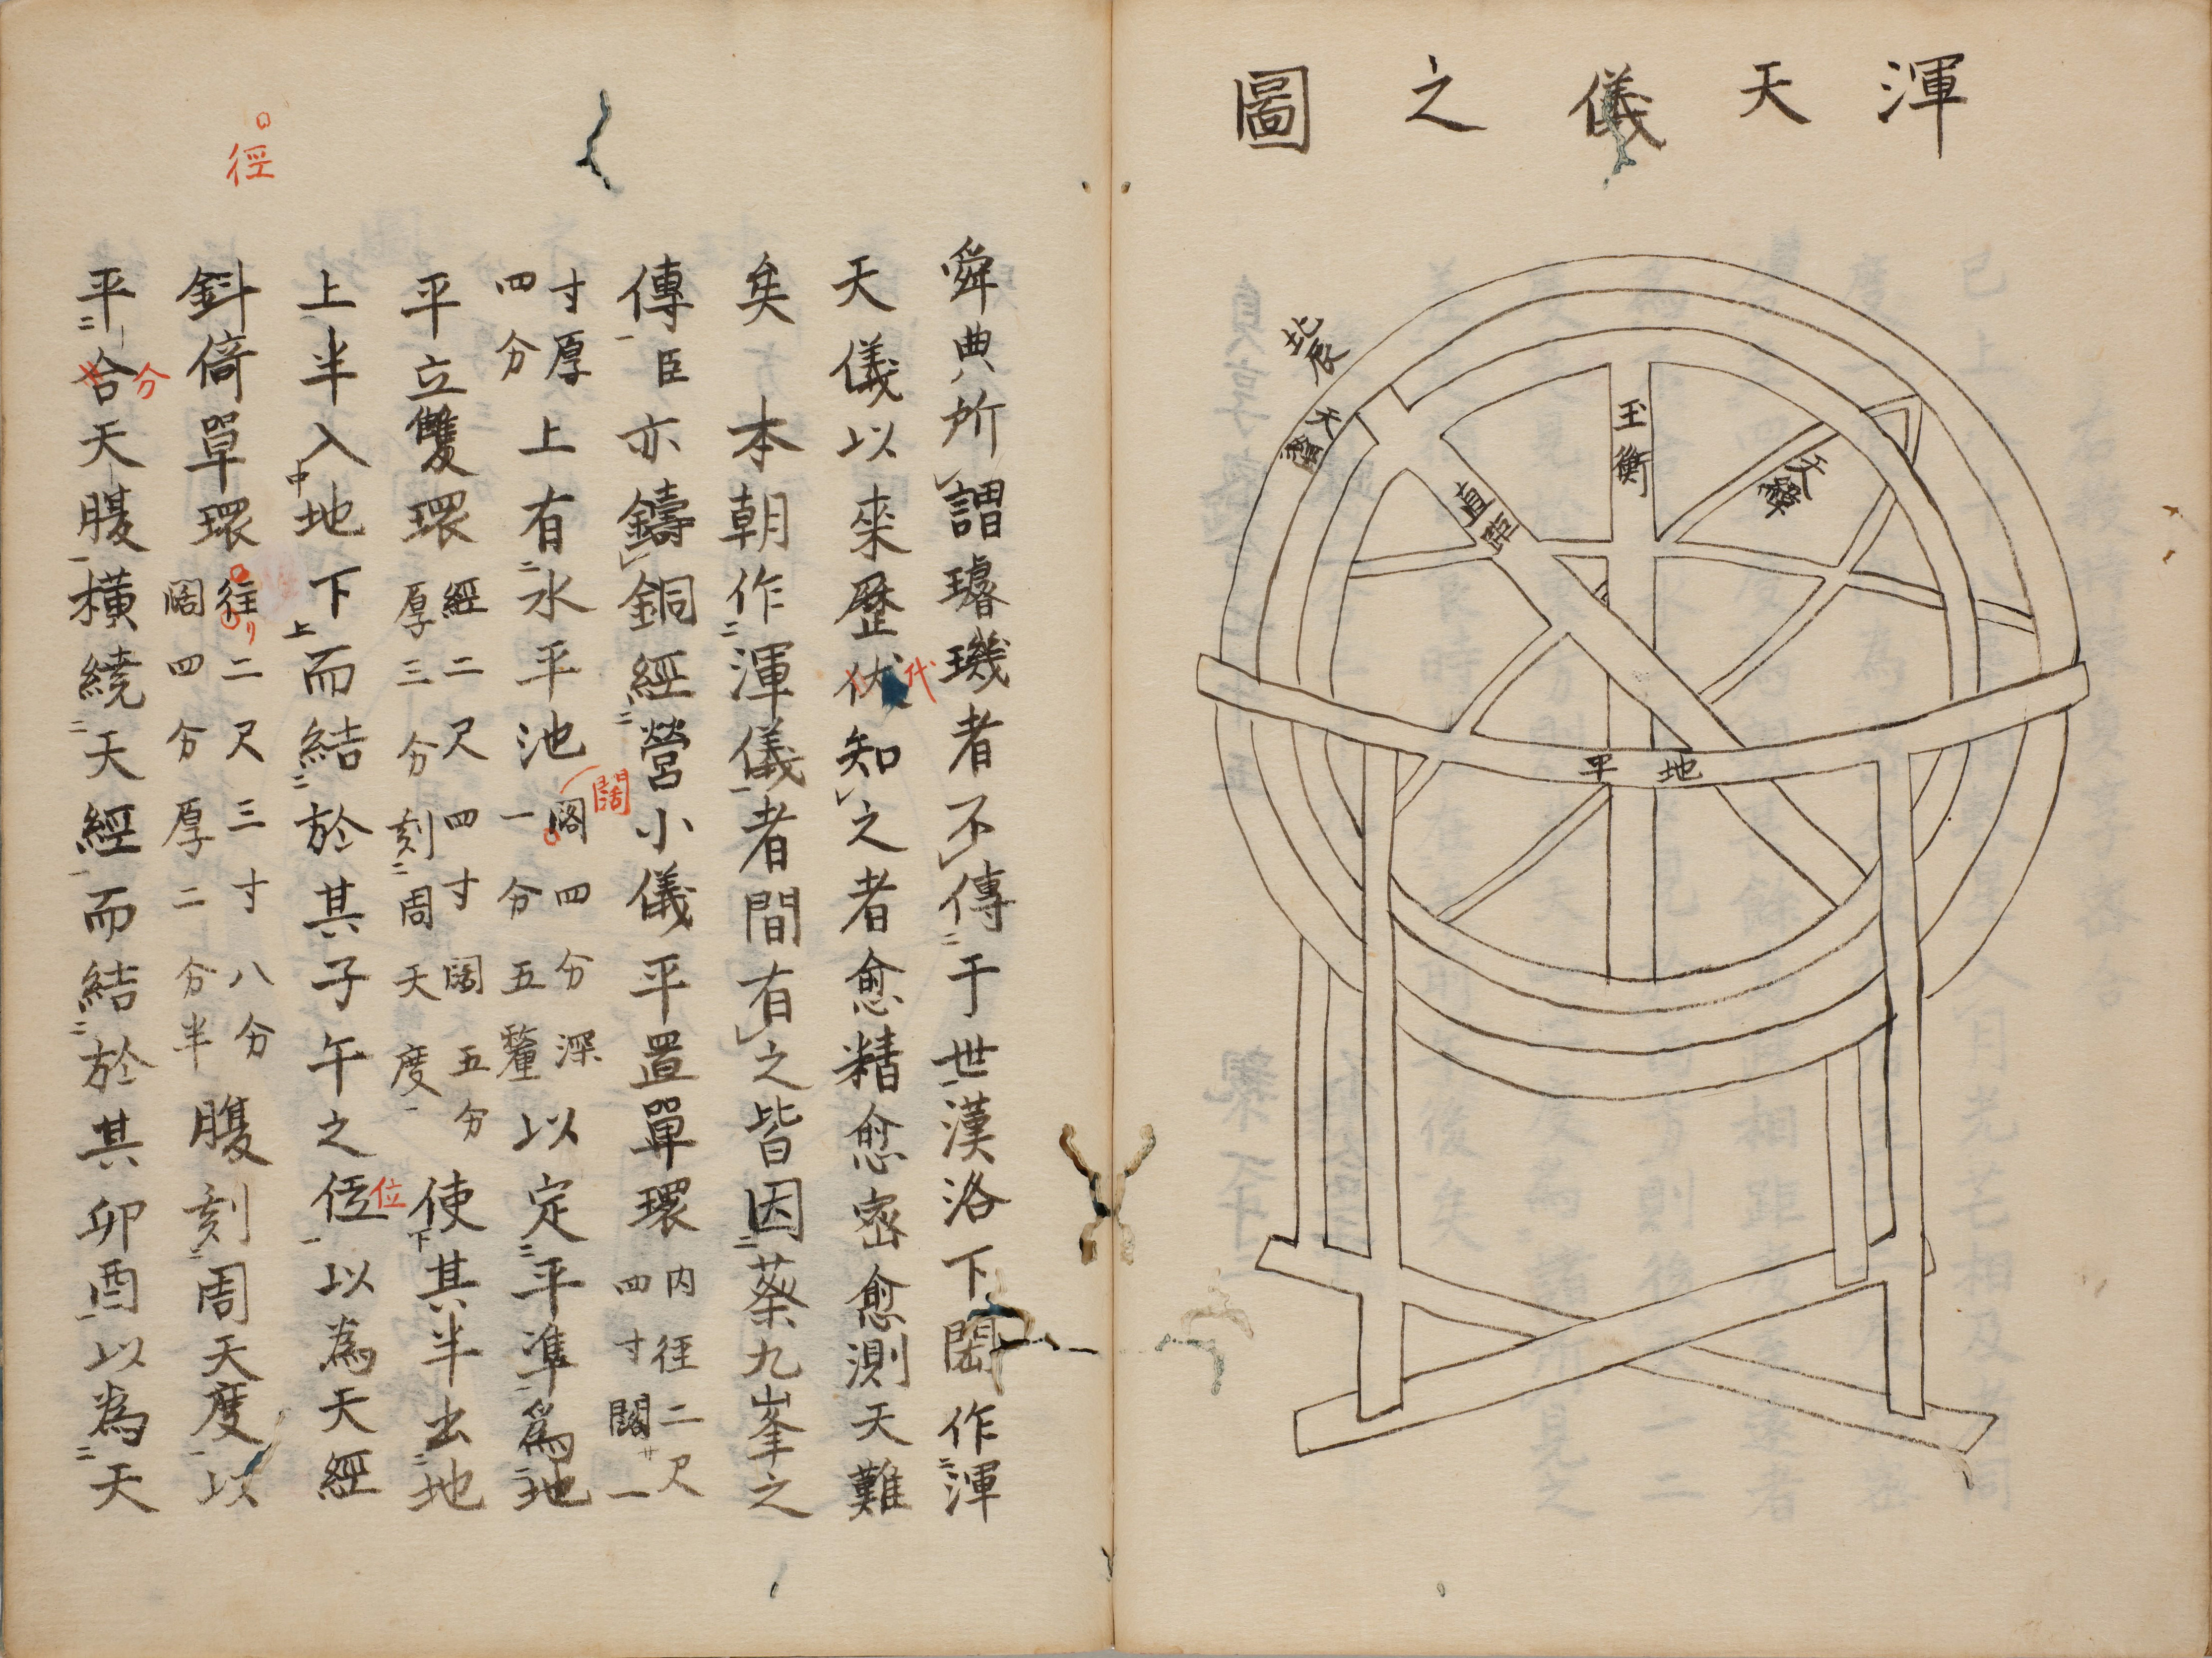 渾天儀之圖
北辰
天經
直距
玉衡
天緯
地平
舜典所謂璿璣者不傳于世漢洛下閎作渾
天儀以来歷伏知之者愈精愈密愈測天難
代
矣 本朝作渾儀者間有之皆因蔡九峯之
傳臣亦鑄銅經營小儀平置單環内徑二尺四寸闊一
寸厚四分上有水平池闊四分深一分五釐以定平準爲地
闊
平立雙環經二尺四寸闊五分厚三分刻周天度使其半出地
上半入地下而結於其子午之位以為天經
位
斜倚單環往二尺三寸八分闊四分厚二分半腹刻周天度以
徑
平合天腹橫繞天經而結於其卯酉以為天
分